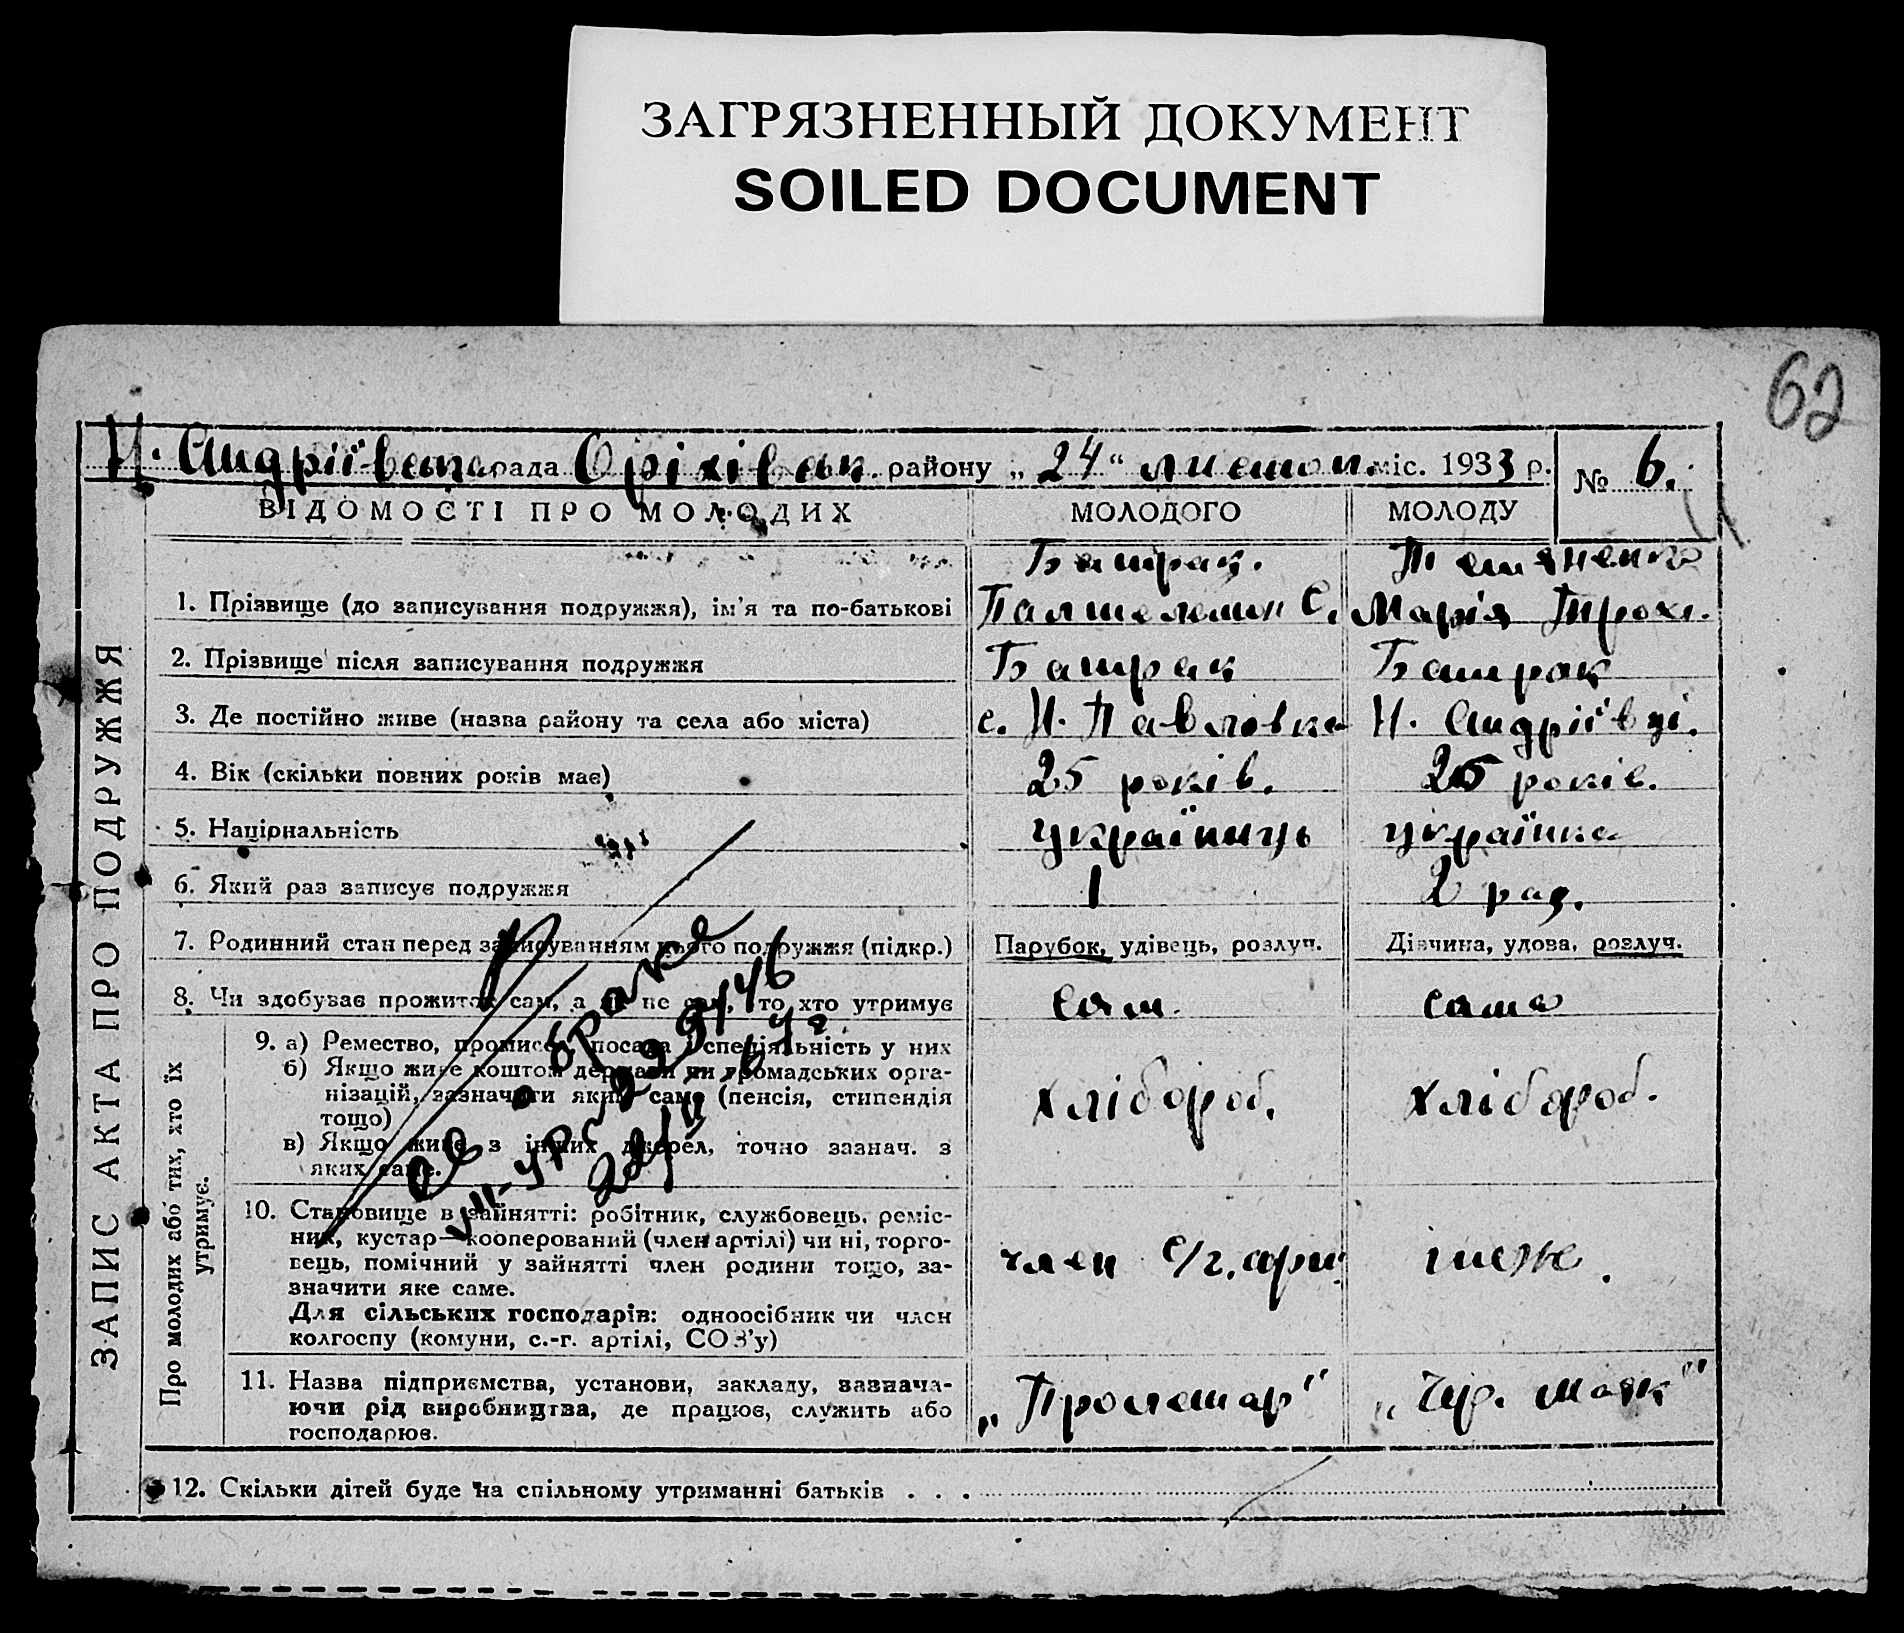 ЗАГРЯЗНЕННЫЙ ДОКУМЕНТ
SOILED DOCUMENT
62
Н. Андріївська рада Оріхівськ. району „24“ листоп. міс. 1933 р.
№ 6.
ВІДОМОСТІ ПРО МОЛОДИХ
МОЛОДОГО
МОЛОДУ
ЗАПИС АКТА ПРО ПОДРУЖЖЯ
1. Прізвище (до записування подружжя), ім'я та по-батькові
Батрак.
Палтелемон С.
Марія Трох
2. Прізвище після записування подружжя
Батрак
Батрак
3. Де постійно живе (назва району та села або міста)
с. Н. Павловка
Н. Андріївці.
4. Вік (скільки повних років має)
25 років.
25 років.
5. Національність
українць
українка
6. Який раз записує подружжя
1
2 раз.
7. Родинний стан перед записуванням цього подружжя (підкр.)
Парубок, удівець, розлуч.
Дівчина, удова, розлуч.
8. Чи здобуває прожиток сам, а як не сам, то хто утримує
сам.
сама
Про молодих або тих, хто їх
утримує.
9. а) Ремество, промисел, посада і спеціяльність у них
б) Якщо живе коштом держави чи громадських орга-
нізацій, зазначити яким саме (пенсія, стипендія
тощо)
в) Якщо живе з інших джерел, точно зазнач. з
яких саме.
хлібороб.
хлібороб.
о браке
10. Становище в зайнятті: робітник, службовець, реміс-
ник, кустар—кооперований (член артілі) чи ні, торго-
вець, помічний у зайнятті член родини тощо, за-
значити яке саме.
Для сільських господарів: одноосібник чи член
колгоспу (комуни, с.-г. артілі, СОЗ'у)
член с/г. арт.
теж.
11. Назва підприємства, установи, закладу, зазнача-
ючи рід виробництва, де працює, служить або
господарює.
„Пролетар"
„Чер. маяк"
12. Скільки дітей буде на спільному утриманні батьків . . .